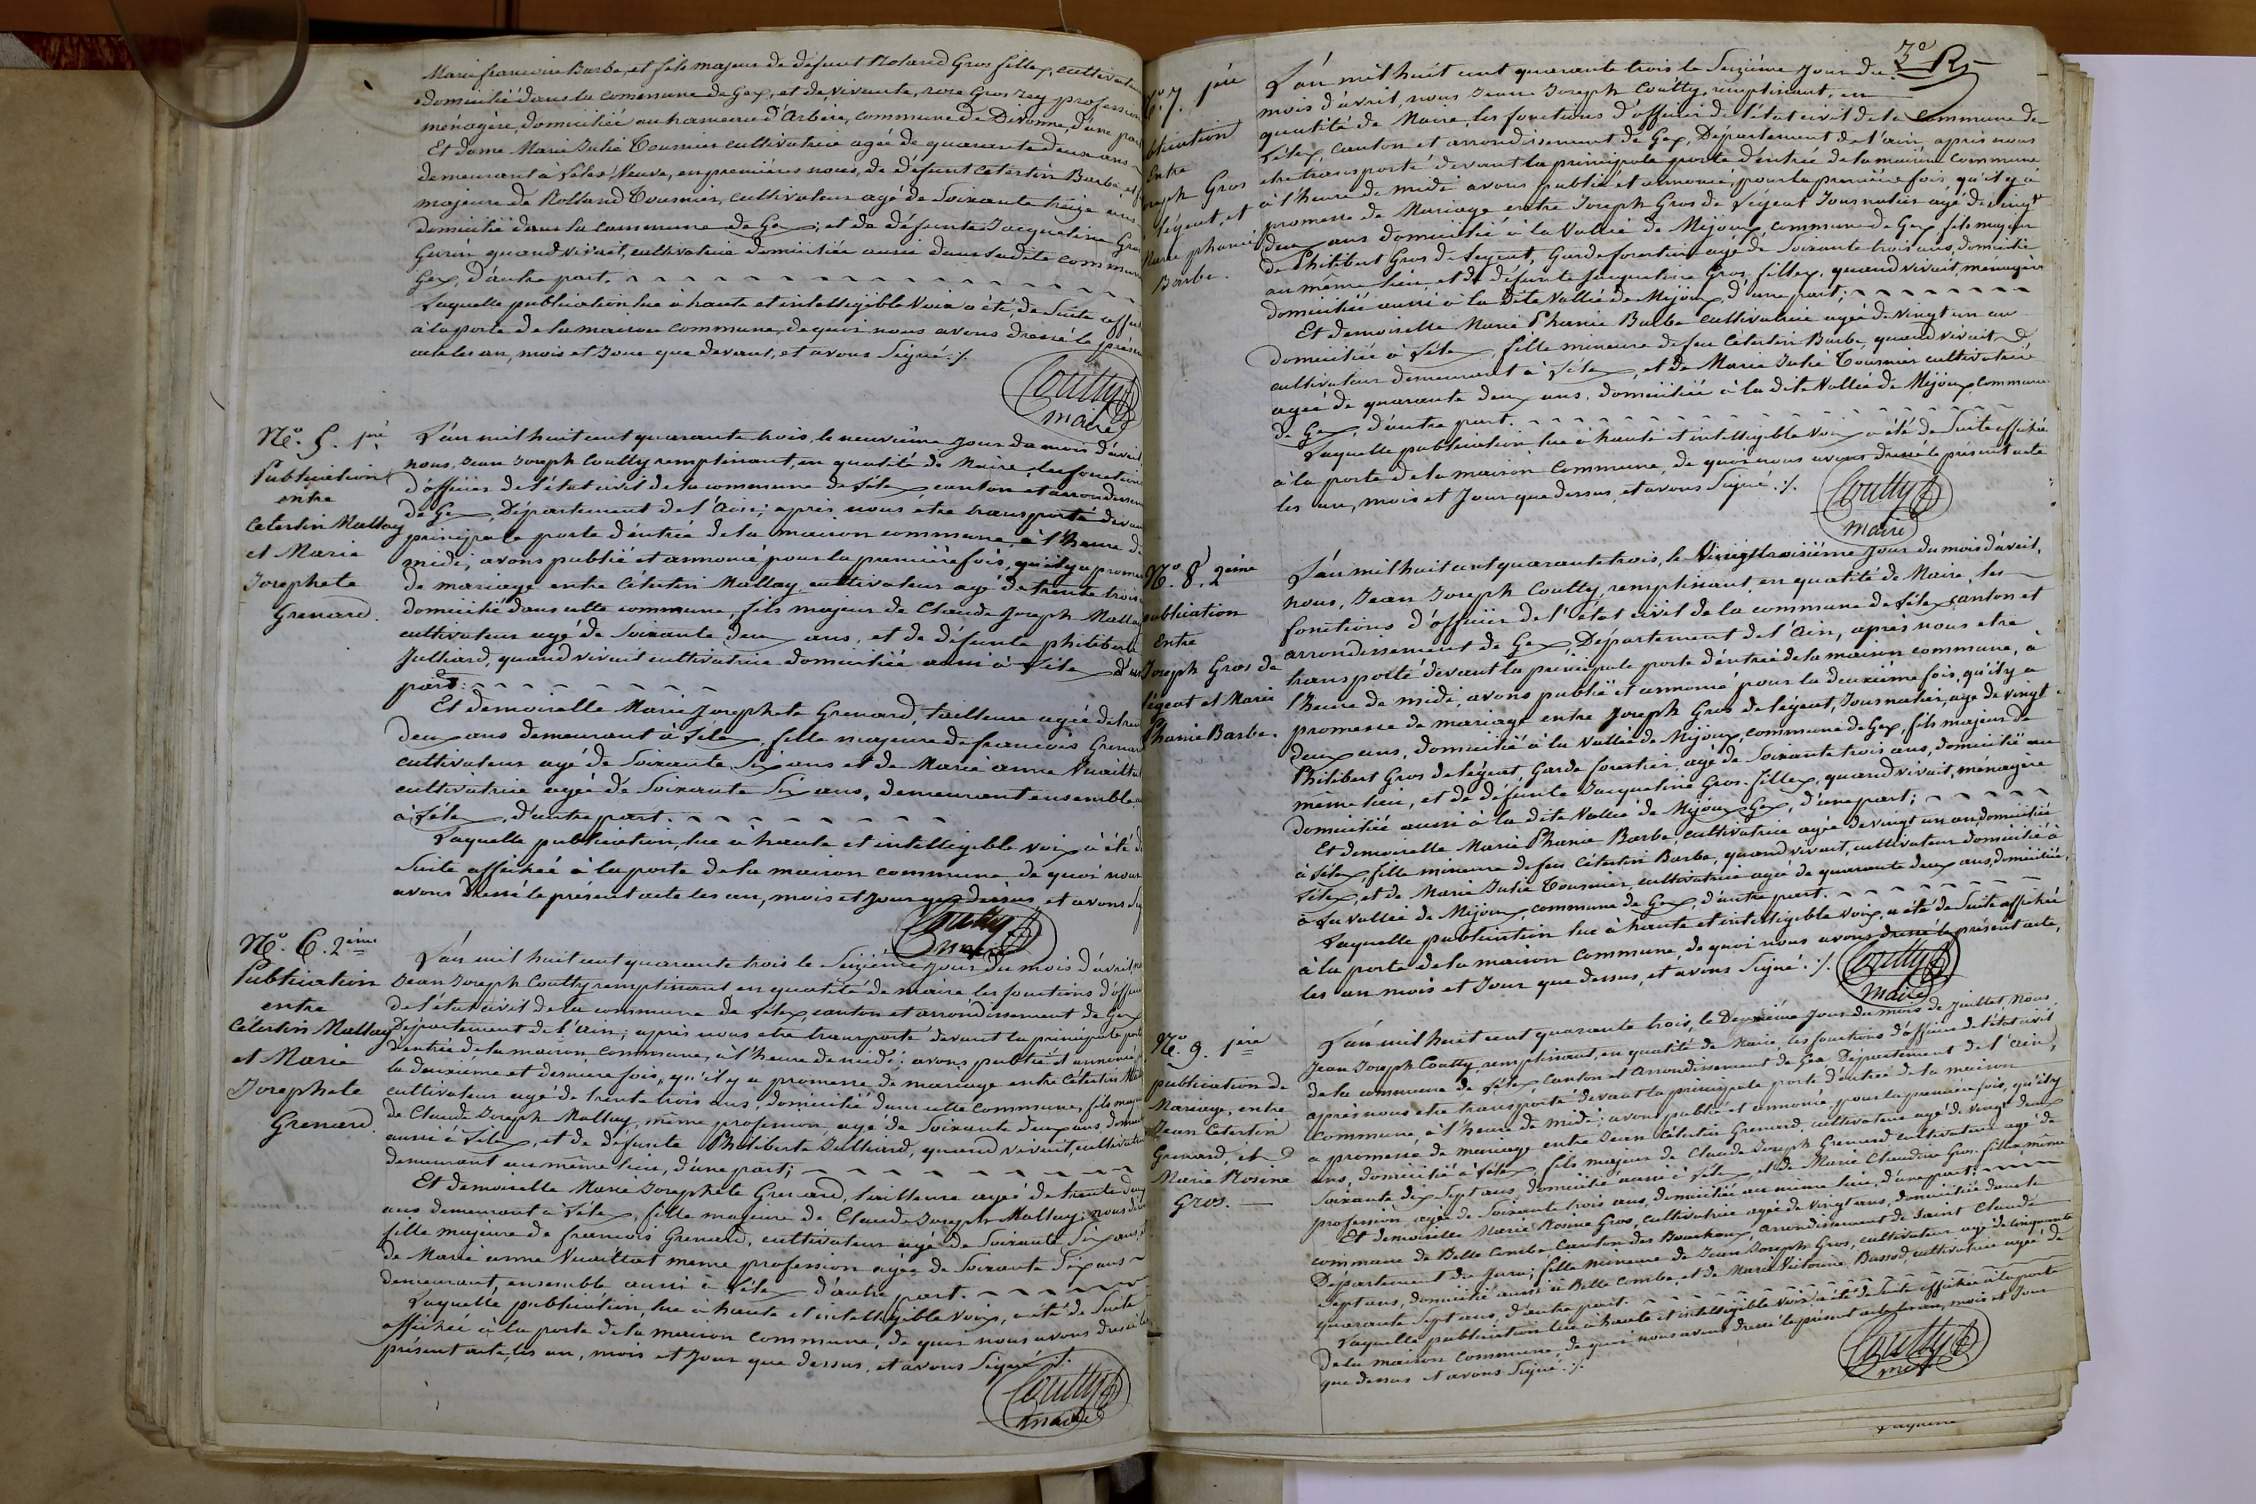 Marie françoise Barbe, et fils majeur de défunt Roland Gros fillex, cultivateur
domicilié dans la commune de Gex, et de vivante, rose Gros rey profession
ménagère, domiciliée au hameau d'Arbère, commune de Divonne, d'une part
Et dame Marie Julie Tournier cultivatrice agée de quarante deux ans
demeurant à Lélex, Veuve, en premières noces, de défunt Célestin Barbe, et f
majeure de Rolland Tournier, cultivateur agé de Soixante treize ans
domicilié dans la commune de Gex; et de défunte Jacqueline Gros
Gurin quand vivait, cultivatrice domiciliée aussi dans ladite commune
Gex, d'autre part.
Laquelle publication lue à haute et intelligible Voix a été, de Suite affi
à la porte de la maison commune, de quoi nous avons dressé le présen
acte les an, mois et Jour que devant, et avons Signé ./.
Coutty
maire
No. 5. 1ère
Publication
entre
Célestin Mallay
et Marie
Josephete
Grenard.
L'an mil huit cent quarante trois, le neuvième Jour du mois d'avril
nous, Jean Joseph Coutty remplissant, en qualité de Maire, les fonction
d'officier de l'état civil de la commune de Lélex canton et arrondissem
de Gex, Département de l'Ain; après nous être transporté devan
principale porte d'entrée de la maison commune, à l'heure de
midi, avons publié et annoncé pour la première fois, qu'il y a promes
de mariage entre Célestin Mallay, cultivateur agé de trente trois
domicilié dans cette commune, fils majeur de Claude Joseph Malla
cultivateur agé de Soixante deux ans, et de défunte philiberte
Julliard, quand vivait cultivatrice domiciliée aussi à Lélex d'une
part:
Et demoiselle Marie Josephete Grenard, tailleuse agée de tren
deux ans demeurant à Lélex, fille majeure de françois Grenar
cultivateur agé de Soixante Six ans et de Marie anne Vuaillat
cultivatrice agée de Soixante Six ans, demeurant ensemble
à Lélex, d'autre part.
Laquelle publication, lue à haute et intelligible voix a été de
Suite affichée à la porte de la maison commune de quoi nous
avons dressé le présent acte les an, mois et Jour que dessus, et avons Sig
Coutty
maire
No. 6. 2ème
Publication
entre
Célestin Mallay
et Marie
Josephete
Grenard.
L'an mil huit cent quarante trois le Seizième Jour du mois d'avril, no
Jean Joseph Coutty remplissant en qualité de maire les fonctions d'offici
de l'état civil de la commune de Lélex canton et arrondissement de Gex
Département de l'ain; après nous etre transporté devant la principale porte
d'entrée de la maison commune, à l'heure de midi; avons publié et annoncé p
la deuxième et dernière fois, qu'il y a promesse de mariage entre Célestin Mall
cultivateur agé de trente trois ans, domicilié dans cette commune, fils maje
de Claude Joseph Mallay, même profession agé de Soixante deux ans, demeur
aussi à Lélex, et de défunte Philiberte Julliard, quand vivait, cultivatrice
demeurant au même lieu, d'une part;
Et demoiselle Marie Josephete Grenard, tailleuse agée de trente deux
ans demeurant à Lélex, fille majeure de Claude Joseph Mallay; nous disons
fille majeure de françois Grenard, cultivateur agé de Soixante Six ans, et
de Marie anne Vuaillat meme profession agée de Soixante Six ans
demeurant, ensemble aussi à Lélex d'autre part.
Laquelle publication, lue à haute et intelligible Voix, a été de Suite
affichée à la porte de la maison commune, de quoi nous avons dressé le
présent acte, les an, mois et Jour que dessus, et avons Signé ./.
Coutty
maire
3e R
No. 7. 1ère
blication
Entre
oseph Gros
légent, et
Marie phanie
Barbe.
L'an mil huit cent quarante trois le Seizième Jour du
mois d'avril, nous Jean Joseph Coutty, remplissant, en
qualité de Maire, les fonctions d'officier de l'état civil de la Commune de
Lélex, canton et arrondissement de Gex, Département de l'ain, après nous
etre transporté devant la principale porte d'entrée de la maison commune
à l'heure de midi avons publié et annoncé, pour la première fois, qu'il y a
promesse de Mariage entre Joseph Gros de Légent Journalier agé de vingt
deux ans domicilié à la Vallée de Mijoux, commune de Gex, fils majeur
de Philibert Gros de Légent, Garde forestier agé de Soixante trois ans, domicilié
au même lieu, et de défunte Jacqueline Gros, fillex, quand vivait, ménagère
domiciliée aussi à la dite Vallée de Mijoux, d'une part;
Et demoiselle Marie Phanie Barbe cultivatrice agée de vingt un an
domiciliée à Lélex, fille mineure de feu Célestin Barbe, quand vivait
cultivateur demeurant à Lélex, et de Marie Julie Tournier cultivatrice
agée de quarante deux ans, domiciliée à la dite Vallée de Mijoux, commune
de Gex, d'autre part.
Laquelle publication lue à haute et intelligible Voix a été de Suite affichée
à la porte de la maison Commune, de quoi nous avons dressé le présent acte
les an, mois et Jour que dessus, et avons Signé ./.
Coutty
maire
No. 8. 2ème
publication
Entre
Joseph Gros de
légent et Marie
Phanie Barbe.
L'an mil huit cent quarante trois, le Vingt troisième Jour du mois d'avril,
nous, Jean Joseph Coutty, remplissant, en qualité de Maire, les
fonctions d'officier de l'état civil de la commune de Lélex canton et
arrondissement de Gex, Département de l'Ain, après nous etre
transporté devant la principale porte d'entrée de la maison commune, à
l'heure de midi, avons publié et annoncé pour la deuxième fois, qu'il y a
promesse de mariage entre Joseph Gros de légent, Journalier, agé de vingt
deux ans, domicilié à la Vallée de Mijoux, commune de Gex, fils majeur de
Philibert Gros de légent, Garde forestier, agé de Soixante trois ans, domicilié au
même lieu, et de défunte Jacqueline Gros-fillex, quand vivait, ménagère
domiciliée aussi à la dite Vallée de Mijoux Gex, d'une part;
Et demoiselle Marie Phanie Barbe, cultivatrice agée de vingt un an, domiciliée
à Lélex, fille mineure de feu Célestin Barbe, quand vivait, cultivateur domicilié à
Lélex, et de Marie Julie Tournier, cultivatrice agée de quarante deux ans, domiciliée
à la vallée de Mijoux, commune de Gex, d'autre part.
Laquelle publication lue à haute et intelligible Voix, a été de Suite affichée
à la porte de la maison Commune, de quoi nous avons dressé le présent acte,
les an mois et Jour que dessus, et avons Signé ./.
Coutty
maire
No. 9. 1ère
publication de
Mariage, entre
Jean Célestin
Grenard, et
Marie Rosine
Gros.
L'an mil huit cent quarante trois, le Deuxième Jour du mois de Juillet, Nous
Jean Joseph Coutty, remplissant, en qualité de Maire, les fonctions d'officier de l'état civil
de la commune de Lélex, Canton et arrondissement de Gex Département de l'ain,
après nous etre transporté devant la principale porte d'entrée de la maison
commune, à l'heure de midi; avons publié et annoncé pour la première fois, qu'il y
a promesse de mariage entre Jean Célestin Grenard, cultivateur agé de vingt deux
ans, domicilié à Lélex, fils majeur de Claude Joseph Grenard cultivateur agé de
Soixante dix Sept ans, domicilié aussi à Lélex, et de Marie Claudine Gros-fillex, même
profession, agée de Soixante trois ans, domiciliée au même lieu, d'une part;
Et demoiselle Marie Rosine Gros, cultivatrice agée de vingt ans, domiciliée dans la
commune de Belle Combe Canton des Bouchoux, arrondissement de Saint Claude
Département du Jura; fille mineure de Jean Joseph Gros, cultivateur agé de cinquante
Sept ans, domicilié aussi à Belle Combe, et de Marie Victorine Bassod, cultivatrice agée de
quarante Sept ans, d'autre part.
Laquelle publication lue à haute et intelligible Voix, a été de Suite affichée à la porte
de la maison Commune, de quoi nous avons dressé le présent acte les an, mois et Jour
que dessus et avons Signé ./.
Coutty
maire